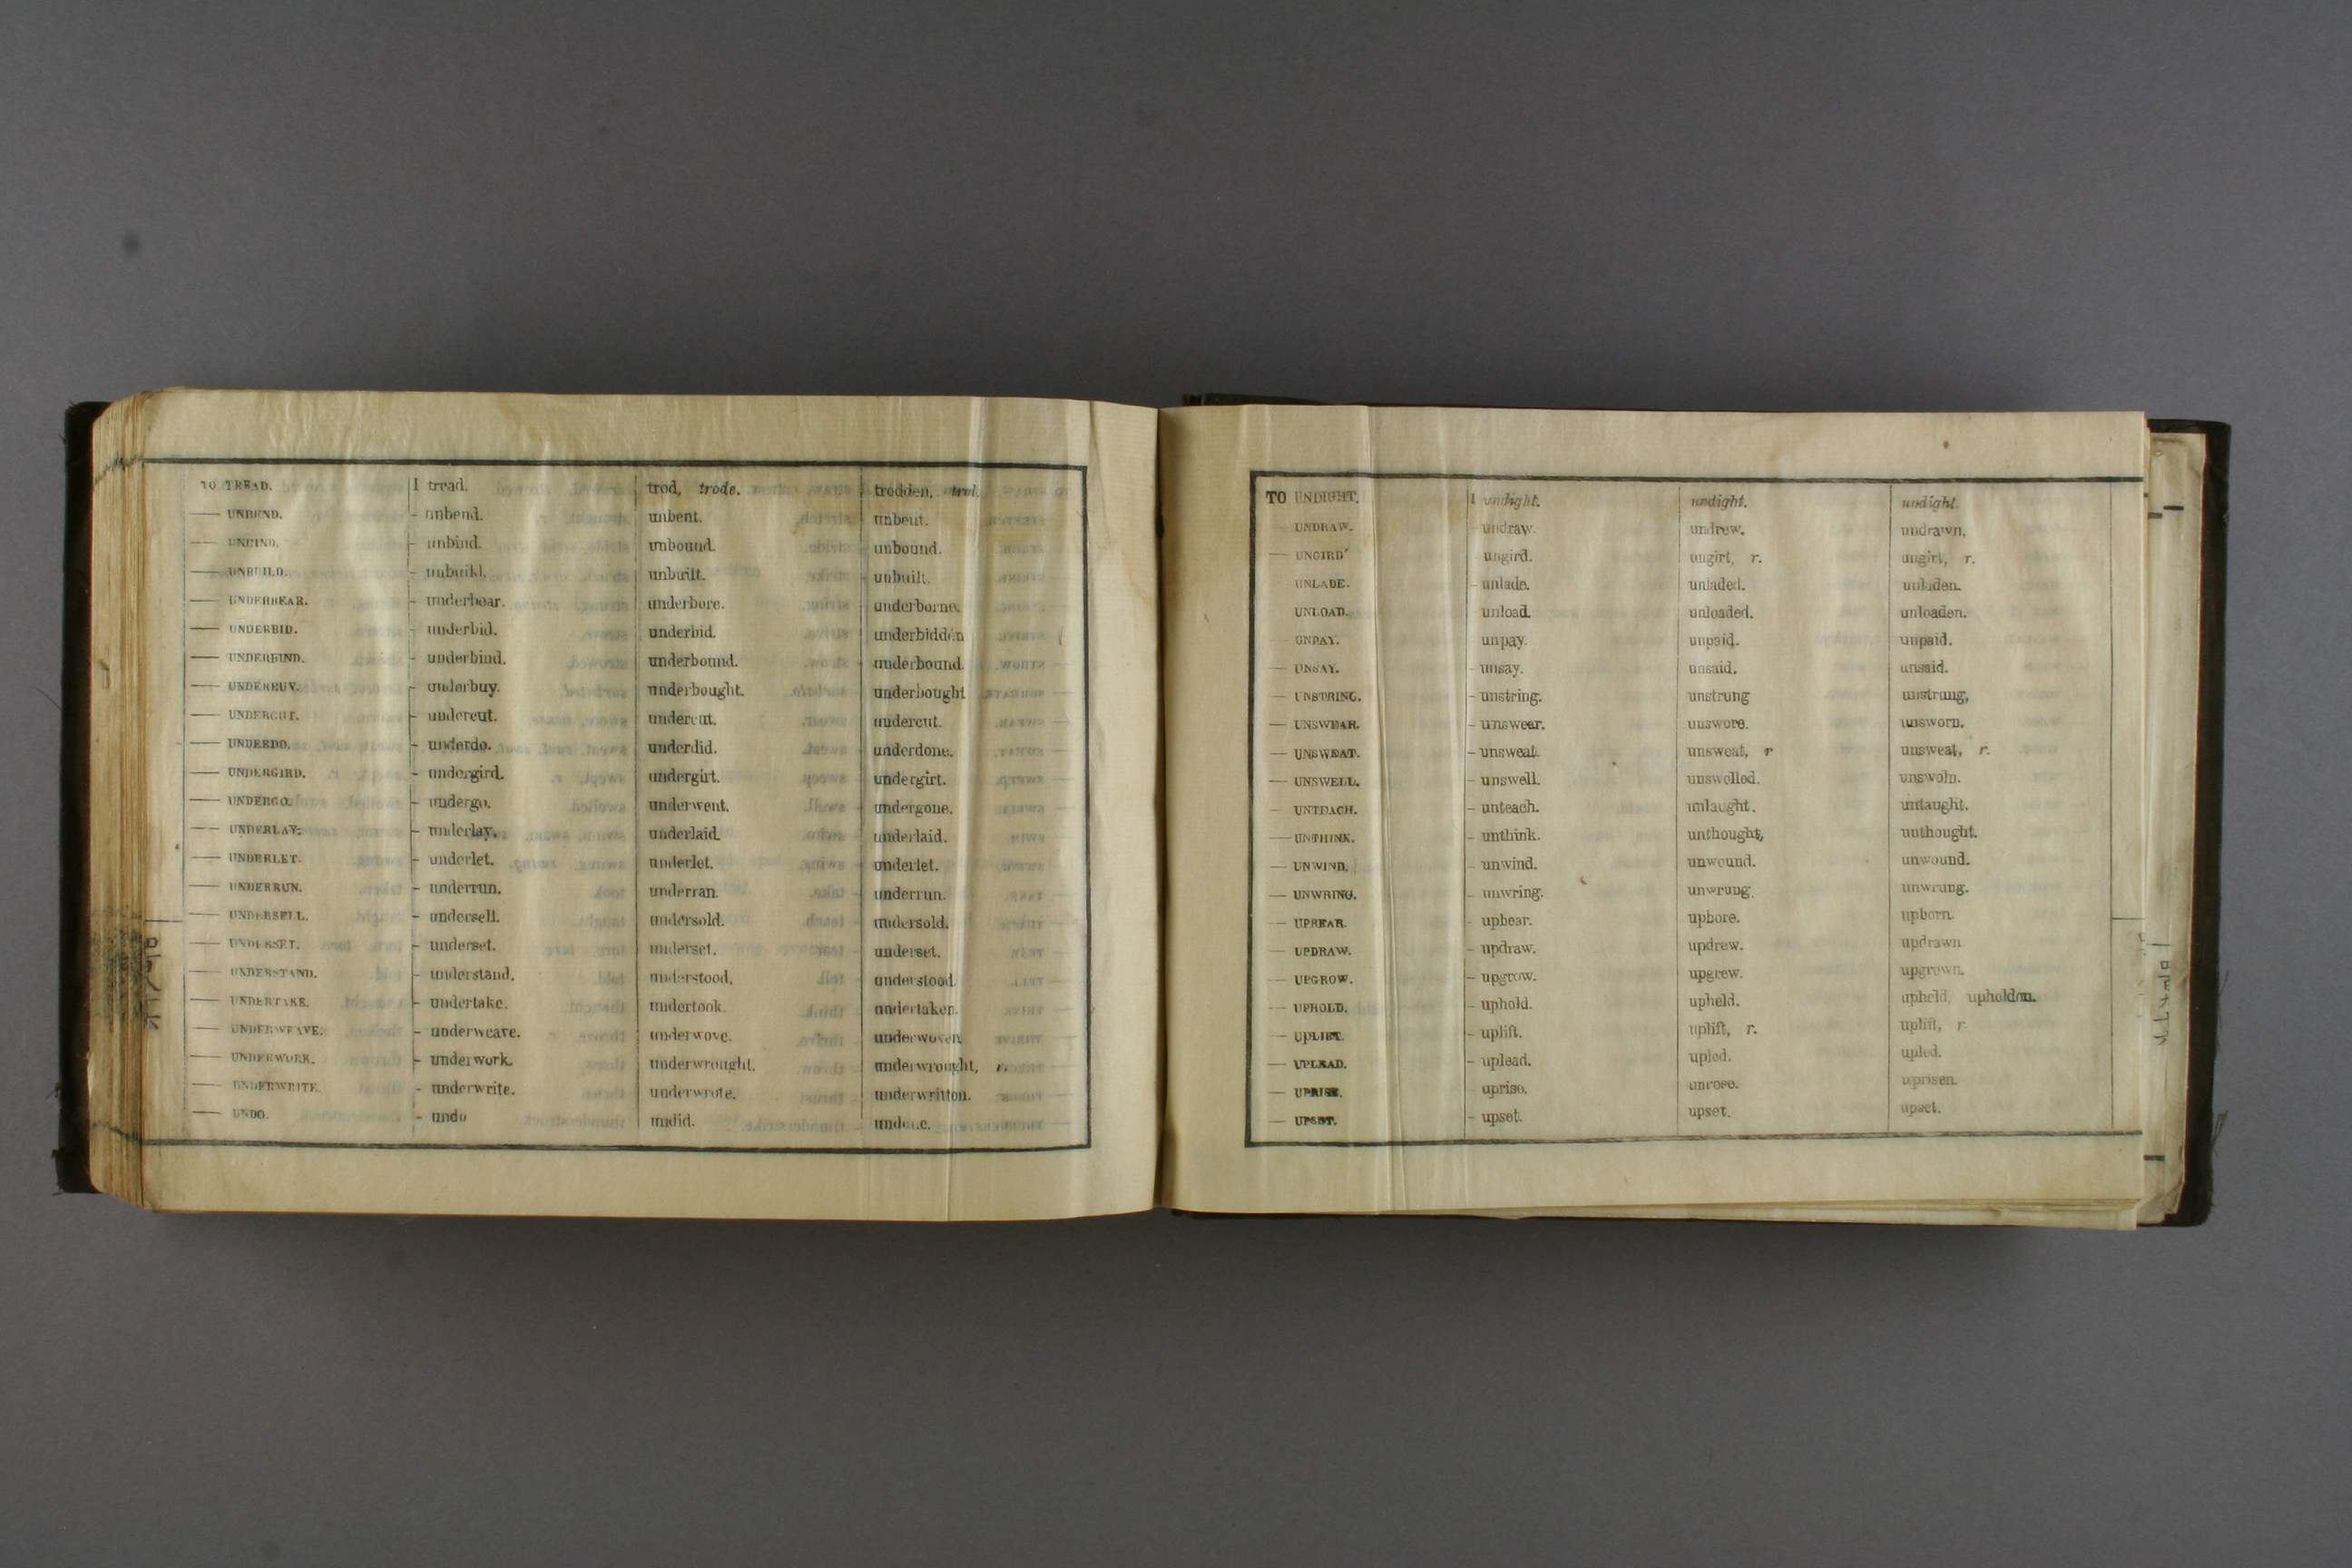 TO TREAD. I tread. trod, trode. trodden, trod.
— UNBEND. - unbend. unbent. unbent.
— UNBIND. - unbind. unbound. unbound.
— UNBUILD. - unbuild. unbuilt. unbuilt.
— UNDERBEAR. - underbear. underbore. underborne.
— UNDERBID. - underbid. underbid. underbidden
— UNDERBIND. - underbind. underbound. underbound.
— UNDERBUY. - underbuy. underbought. underbought
— UNDERCUT. - undercut. undercut. undercut.
— UNDERDO. - underdo. underdid. underdone.
— UNDERGIRD. - undergird. undergirt. undergirt.
— UNDERGO. - undergo. underwent. undergone.
— UNDERLAY. - underlay. underlaid. underlaid.
— UNDERLET. - underlet. underlet. underlet.
— UNDERRUN. - underrun. underran. underrun.
— UNDERSELL. - undersell. undersold. undersold.
— UNDERSET. - underset. underset. underset.
— UNDERSTAND. - understand. understood. understood.
— UNDERTAKE. - undertake. undertook. undertaken.
— UNDERWEAVE. - underweave. underwove. underwoven
— UNDERWORK. - underwork. underwrought. underwrought, r.
— UNDERWRITE. - underwrite. underwrote. underwritton.
— UNDO. - undo undid. undone.
TO UNDIGHT. I undight. undight. undight.
UNDRAW. undraw. undrew. undrawn,
— UNGIRD ungird. ungirt, r. ungirt, r.
UNLADE. - unlade. unladed. unladen.
UNLOAD. unload. unloaded. unloaden.
UNPAY. unpay. unpaid. unpaid.
— UNSAY. - unsay. unsaid. unsaid.
— UNSTRING. - unstring. unstrung unstrung,
— UNSWEAR. - unswear. unswore. unsworn.
— UNSWEAT. - unsweat. unsweat, r unsweat, r.
— UNSWELL. - unswell. unswelled. unswoln.
— UNTEACH. - unteach. untaught. untaught.
— UNTHINK. - unthink. unthought, unthought.
— UNWIND. - unwind. unwound. unwound.
— UNWRING. - unwring. unwrung. unwrung.
— UPBEAR. - upbear. upbore. upborn.
— UPDRAW. - updraw. updrew. updrawn
— UPGROW. - upgrow. upgrew. upgrown.
— UPHOLD. - uphold. upheld. upheld, upholden.
— UPLIFT. - uplift. uplift, r. uplift, r
— UPLEAD. - uplead. upled. upled.
— UPRISE. upriso. unrose. uprisen.
— UPSET. - upset. upset. upset.